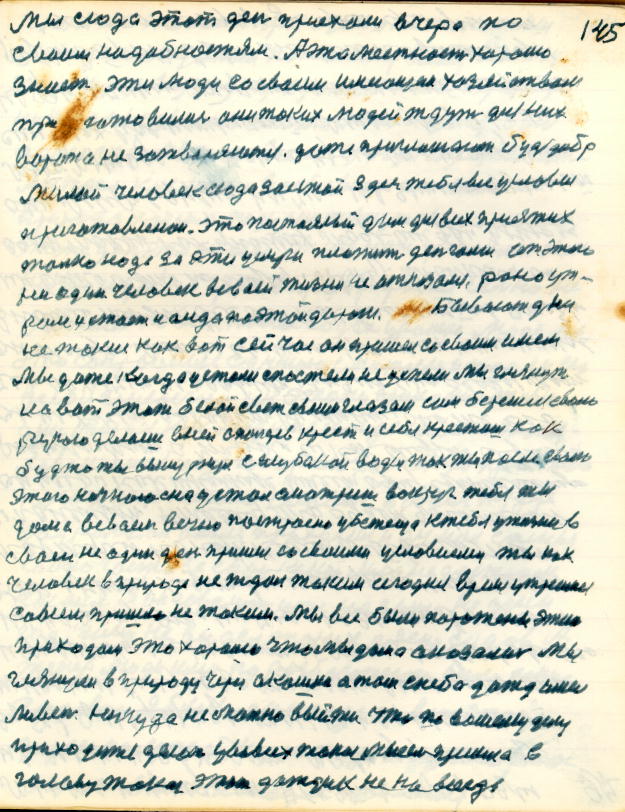 145
Мы сюда этот ден приехали вчера по
своим надобностям. А эта местност хорошо
знает эти люди со своим имеющим хозяйством
при готовилис они таких людей ждут для них
ворота не затворяются. даже приглашают будь добр
милой человек сюда заезжай здес тебе все условия
приготовлены. это постоялый дом для всех приезжих
толко надо за эти услуги платит денгами от этого
ни один человек в своей жизни не отказался, рано ут-
ром устает и на поэтой дороги. Бывают дни
не такие как вот сейчас он пришел со своим имем
Мы даже когда устали с постели не успели мы глянут
на вот этот белой свет своим глазам сам берешся свою
рукою делаеш в ней с пальцев крест и себя крестиш как
будто ты вынурнул с глубокой воды так ты после своего
этого ночного сна устал смотриш вокруг тебя ты
дома в своем вечно построено убежеща к тебе у жизни в
своем не один ден пришел со своими условиями ты как
человек в природе не ждал таким сегодня время утренее
совсем пришло не таким. Мы все были поражены этим
приходом это хорошо что мы дома оказалис мы
глянули в природу через окошка а там с неба дожд имел
ливен. Никуда не можно выйти что по вашему делу
приходите делат у всех такая мысл пришла в
голову така этот дождик не на всегда